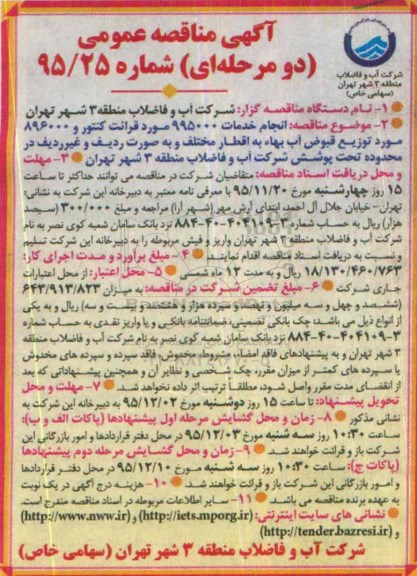 آگهی مناقصه عمومی
(دو مرحله‌ای) شماره ۹۵/۲۵
شرکت آب و فاضلاب
منطقه ۳ شهر تهران
(سهامی خاص)
۱- نام دستگاه مناقصه گزار: شرکت آب و فاضلاب منطقه ۳ شهر تهران
۲- موضوع مناقصه: انجام خدمات ۹۹۵۰۰۰ مورد قرائت کنتور و ۸۹۶۰۰۰
مورد توزیع قبوض آب بهاء به اقطار مختلف و به صورت ردیف و غیرردیف در
محدوده تحت پوشش شرکت آب و فاضلاب منطقه ۳ شهر تهران ۳- مهلت
و محل دریافت اسناد مناقصه: متقاضیان شرکت در مناقصه می توانند حداکثر تا ساعت
۱۵ روز چهارشنبه مورخ ۹۵/۱۱/۲۰ با معرفی نامه معتبر به دبیرخانه این شرکت به نشانی:
تهران- خیابان جلال آل احمد، ابتدای آرش مهر (شهر آرا) مراجعه و مبلغ ۳۰۰/۰۰۰ (سیصد
هزار) ریال به حساب شماره ۳-۴۰۴۱۰۹-۴۰-۸۸۴ نزد بانک سامان شعبه کوی نصر به نام
شرکت آب و فاضلاب منطقه ۳ شهر تهران واریز و فیش مربوطه را به دبیرخانه این شرکت تسلیم
و نسبت به دریافت اسناد مناقصه اقدام نمایند. ۴- مبلغ برآورد و مدت اجرای کار:
۱۸/۱۳۰/۴۶۰/۷۶۳ ریال و به مدت ۱۲ ماه شمسی ۵- محل اعتبار: از محل اعتبارات
جاری شرکت ۶- مبلغ تضمین شرکت در مناقصه: به میزان ۶۴۳/۹۱۳/۸۲۳
(ششصد و چهل و سه میلیون و نهصد و سیزده هزار و هشتصد و بیست و سه) ریال و به یکی
از انواع ذیل می باشد: چک بانکی تضمینی، ضمانتنامه بانکی و یا واریز نقدی به حساب شماره
۳-۴۰۴۱۰۹-۴۰-۸۸۴ نزد بانک سامان شعبه کوی نصر به نام شرکت آب و فاضلاب منطقه
۳ شهر تهران و به پیشنهادهای فاقد امضاء، مشروط، مخدوش، فاقد سپرده و سپرده های مخدوش
یا سپرده های کمتر از میزان مقرر، چک شخصی و نظایر آن و همچنین پیشنهاداتی که بعد
از انقضای مدت مقرر واصل شود، مطلقاً ترتیب اثر داده نخواهد شد. ۷- مهلت و محل
تحویل پیشنهاد: تا ساعت ۱۵ روز دوشنبه مورخ ۹۵/۱۲/۰۲ به دبیرخانه این شرکت به
نشانی مذکور ۸- زمان و محل گشایش مرحله اول پیشنهادها (پاکات الف و ب):
ساعت ۱۰:۳۰ روز سه شنبه مورخ ۹۵/۱۲/۰۳ در محل دفتر قراردادها و امور بازرگانی این
شرکت باز و قرائت خواهند شد. ۹- زمان و محل گشایش مرحله دوم پیشنهادها
(پاکات ج): ساعت ۱۰:۳۰ روز سه شنبه مورخ ۹۵/۱۲/۱۰ در محل دفتر قراردادها
و امور بازرگانی این شرکت باز و قرائت خواهند شد. ۱۰- هزینه درج آگهی در یک نوبت
به عهده برنده مناقصه می باشد. ۱۱- سایر اطلاعات مربوطه در اسناد مناقصه مندرج است.
نشانی های سایت اینترنتی: (http://iets.mporg.ir) و (http://www.nww.ir)
و (http://tender.bazresi.ir)
شرکت آب و فاضلاب منطقه ۳ شهر تهران (سهامی خاص)